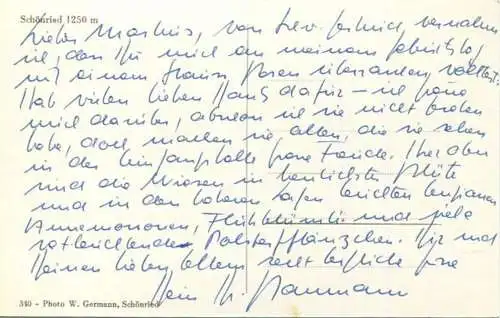 Schönried 1250 m
Lieber Markus, von
ich, dass Du mich an meinem Geburtstag
mit einem Strauss Rosen überraschen wolltest.
Hab vielen lieben Dank dafür – ich freue
mich darüber, obwohl ich sie nicht
habe, doch machen sie allen, die sie sehen
in der Empfangshalle grosse Freude. Hier oben
sind die Wiesen in herrlichster Blüte
und in den höheren Lagen leuchten Enzianen
Anemonen, Flühblümli und viele
rotleuchtende Polsterpflänzchen. Dir und
Deinen lieben Eltern recht herzliche Grüsse
Dein H. Naumann
340 - Photo W. Germann, Schönried